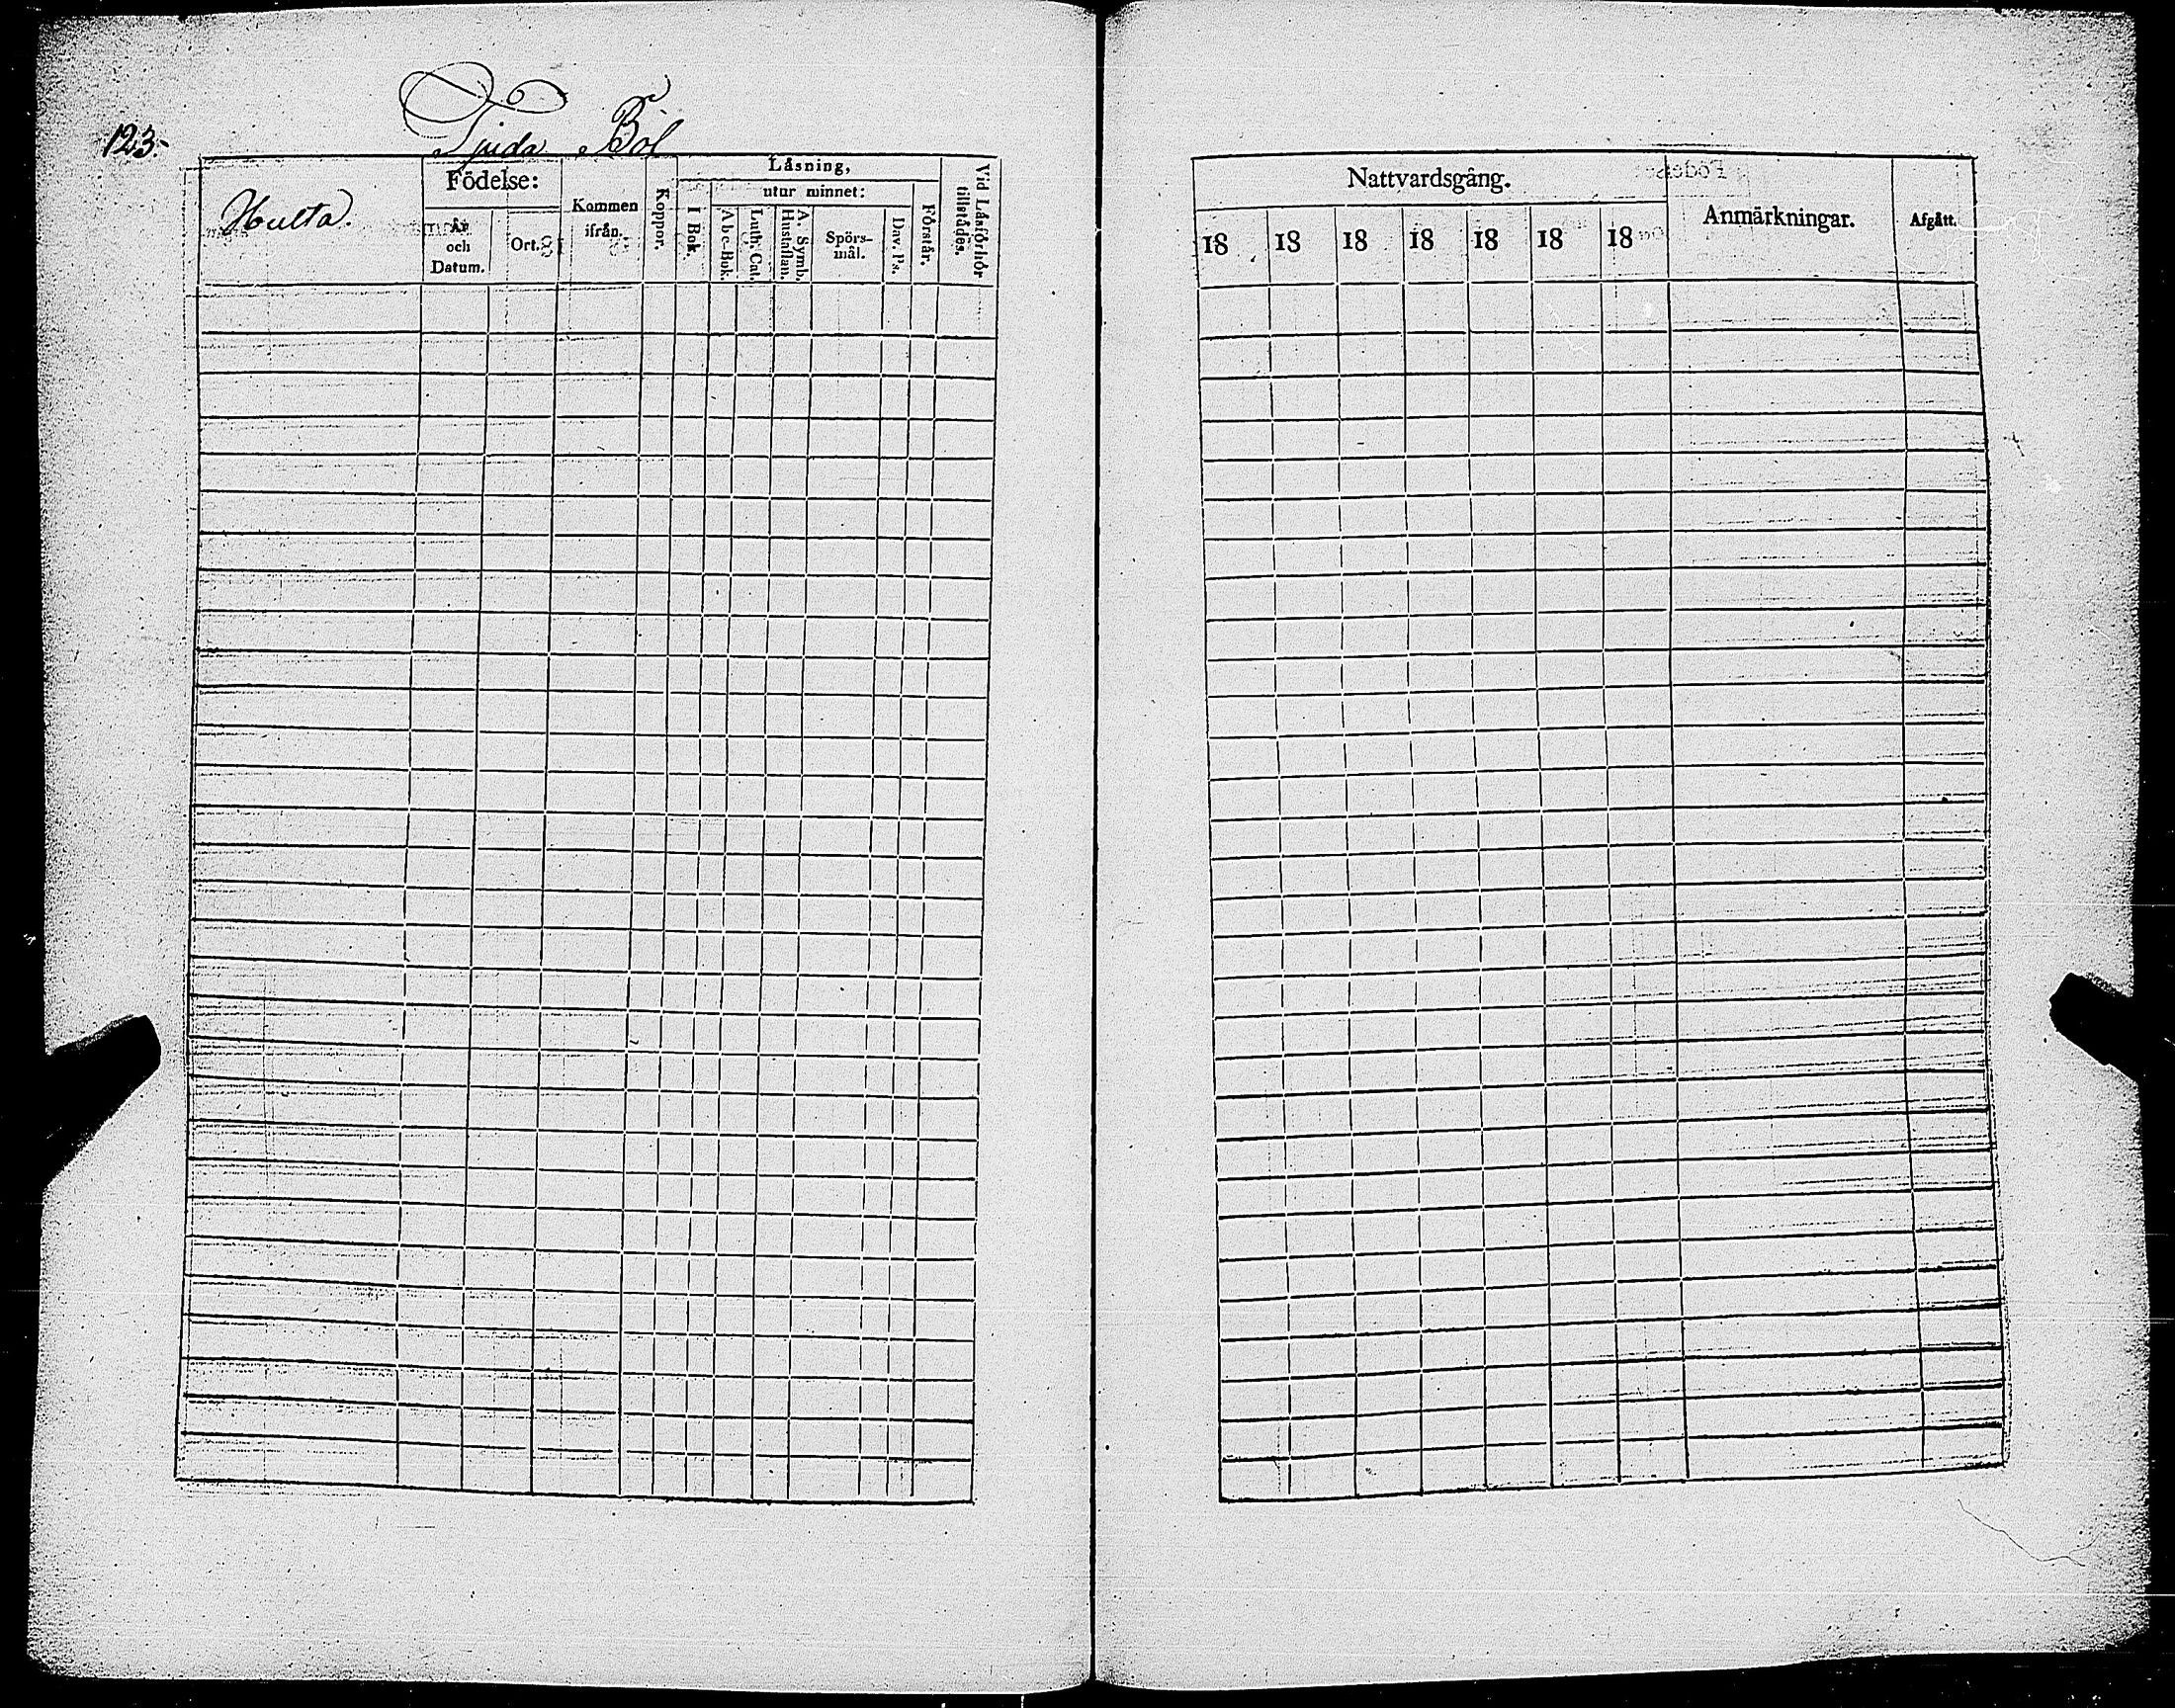 123.
Tjuda Böl
Hulta.
Födelse:
År och Datum.
Ort.
Kommen ifrån.
Koppor.
Låsning,
I Bok.
utur minnet:
Abc-Bok.
Luth. Cat.
A. Symb. Hustaflan.
Spörs-
mål.
Dav. Ps.
Förstår.
Vid Låsförhör tillstådes.
Nattvardsgång.
18 18 18 18 18 18 18
Anmärkningar.
Afgått.